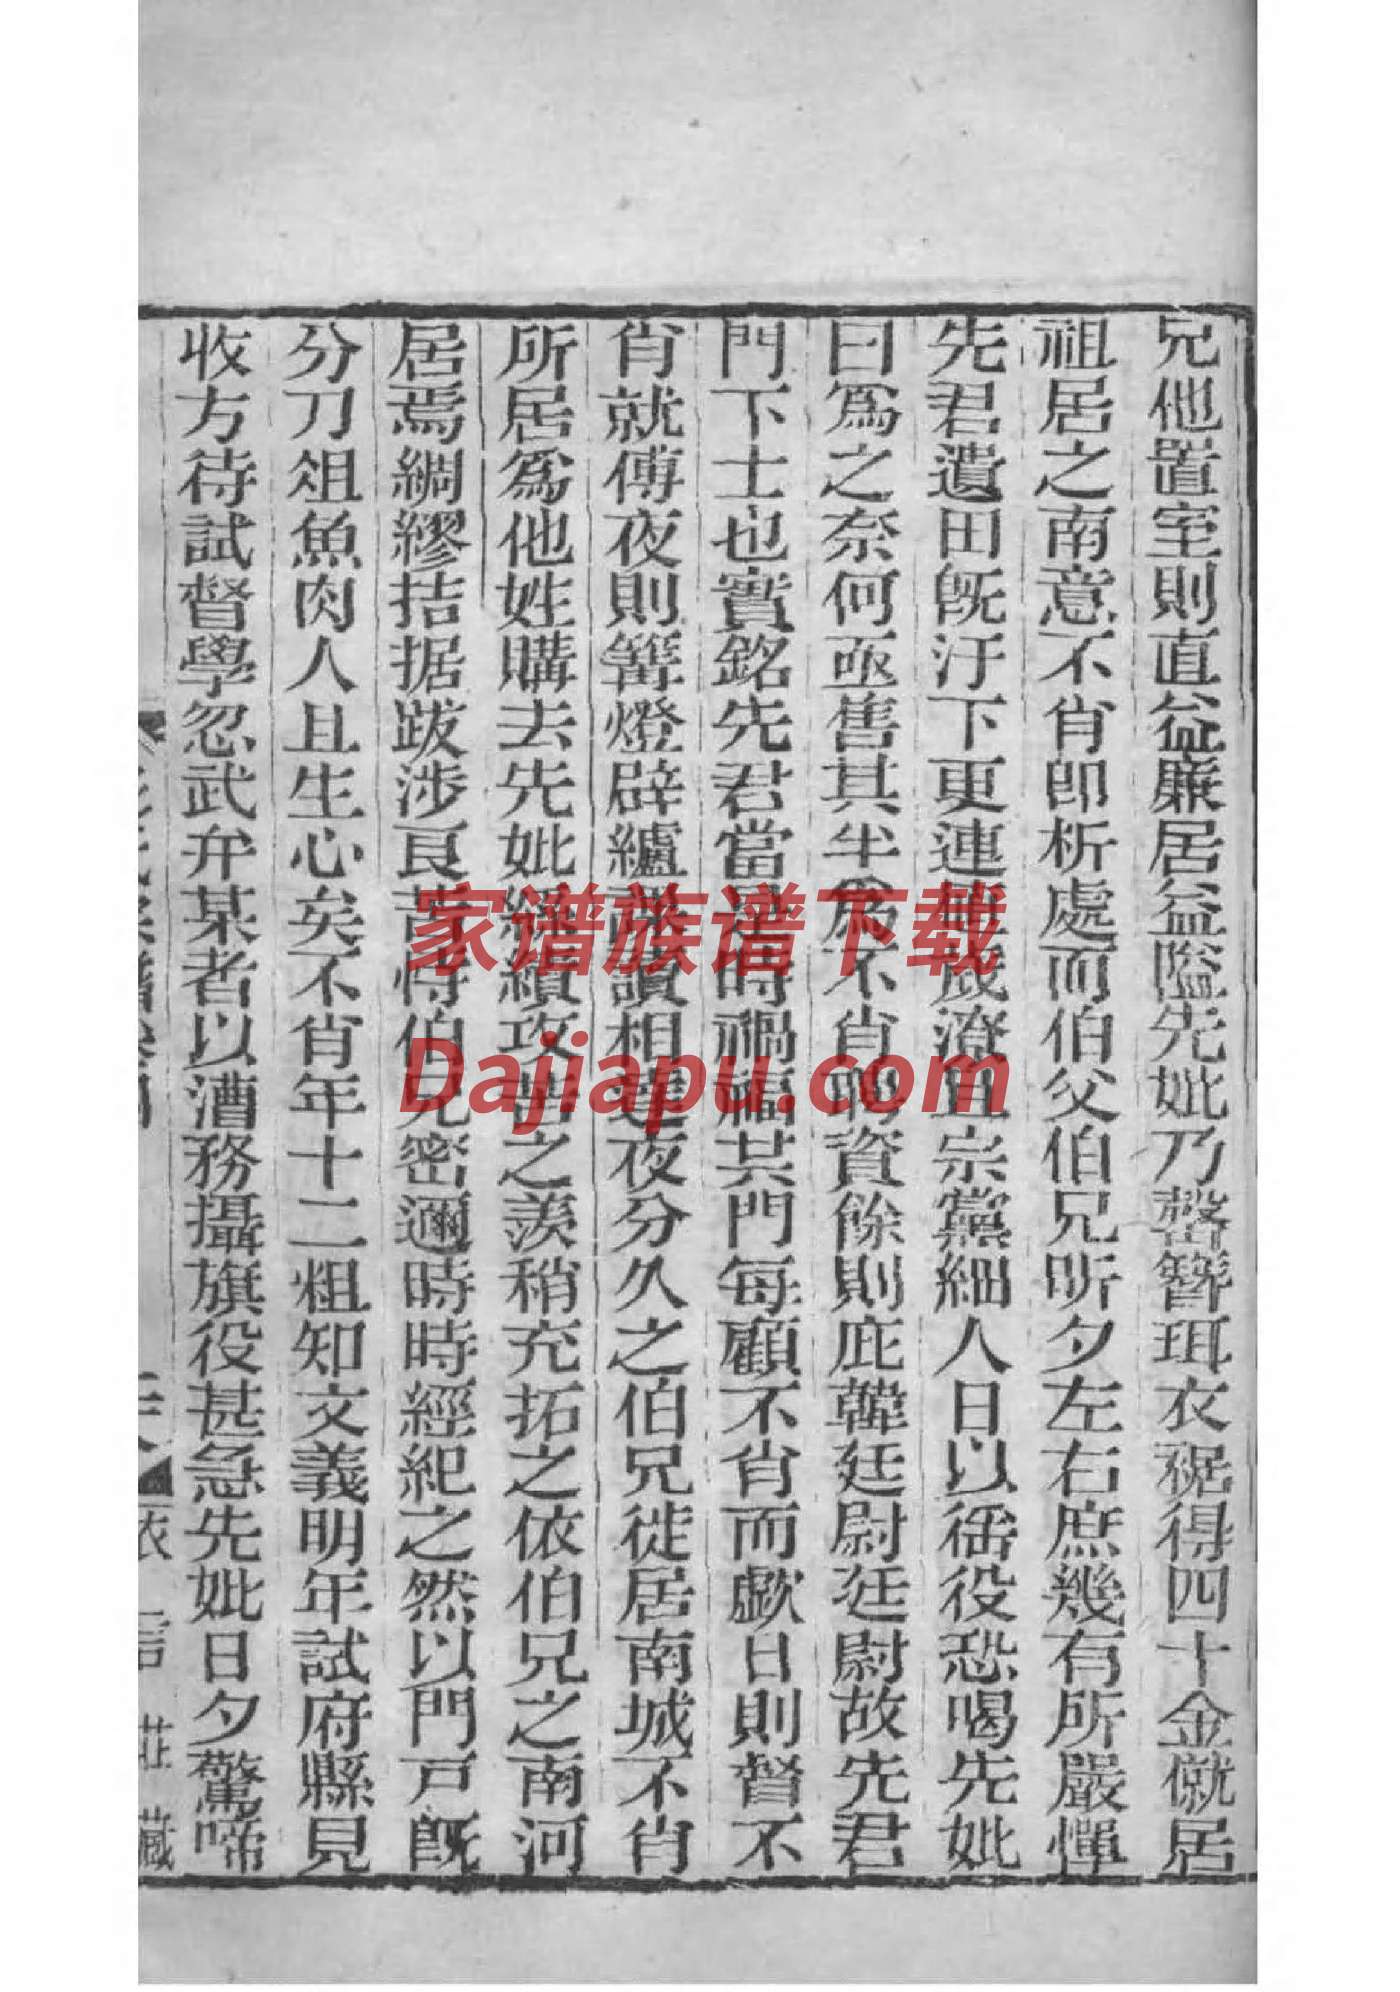 兄他置室則直益廉居益隘先妣乃罄簪珥衣裾得四十金僦居
祖居之南意不肖卽析處而伯父伯兄昕夕左右庶幾有所嚴憚
先君遺田旣汙下更連歲潦且宗黨細人日以徭役恐喝先妣
曰爲之奈何亟售其半爲不肖資餘則庇韓廷尉廷尉故先君
門下士也實銘先君當是時禍福其門每顧不肖而歔曰則督不
肖就傅夜則篝燈辟纑誦讀相達夜分久之伯兄徙居南城不肖
所居爲他姓購去先妣績攻苦之羨稍充拓之依伯兄之南河
居焉綢繆拮据跋涉良苦恃伯兄密邇時時經紀之然以門戸旣
分刀俎魚肉人且生心矣不肖年十二粗知文義明年試府縣見
收方待試督學忽武弁某者以漕務攝旗役甚急先妣日夕驚啼
依言莊藏
家谱族谱下载
Dajiapu.com